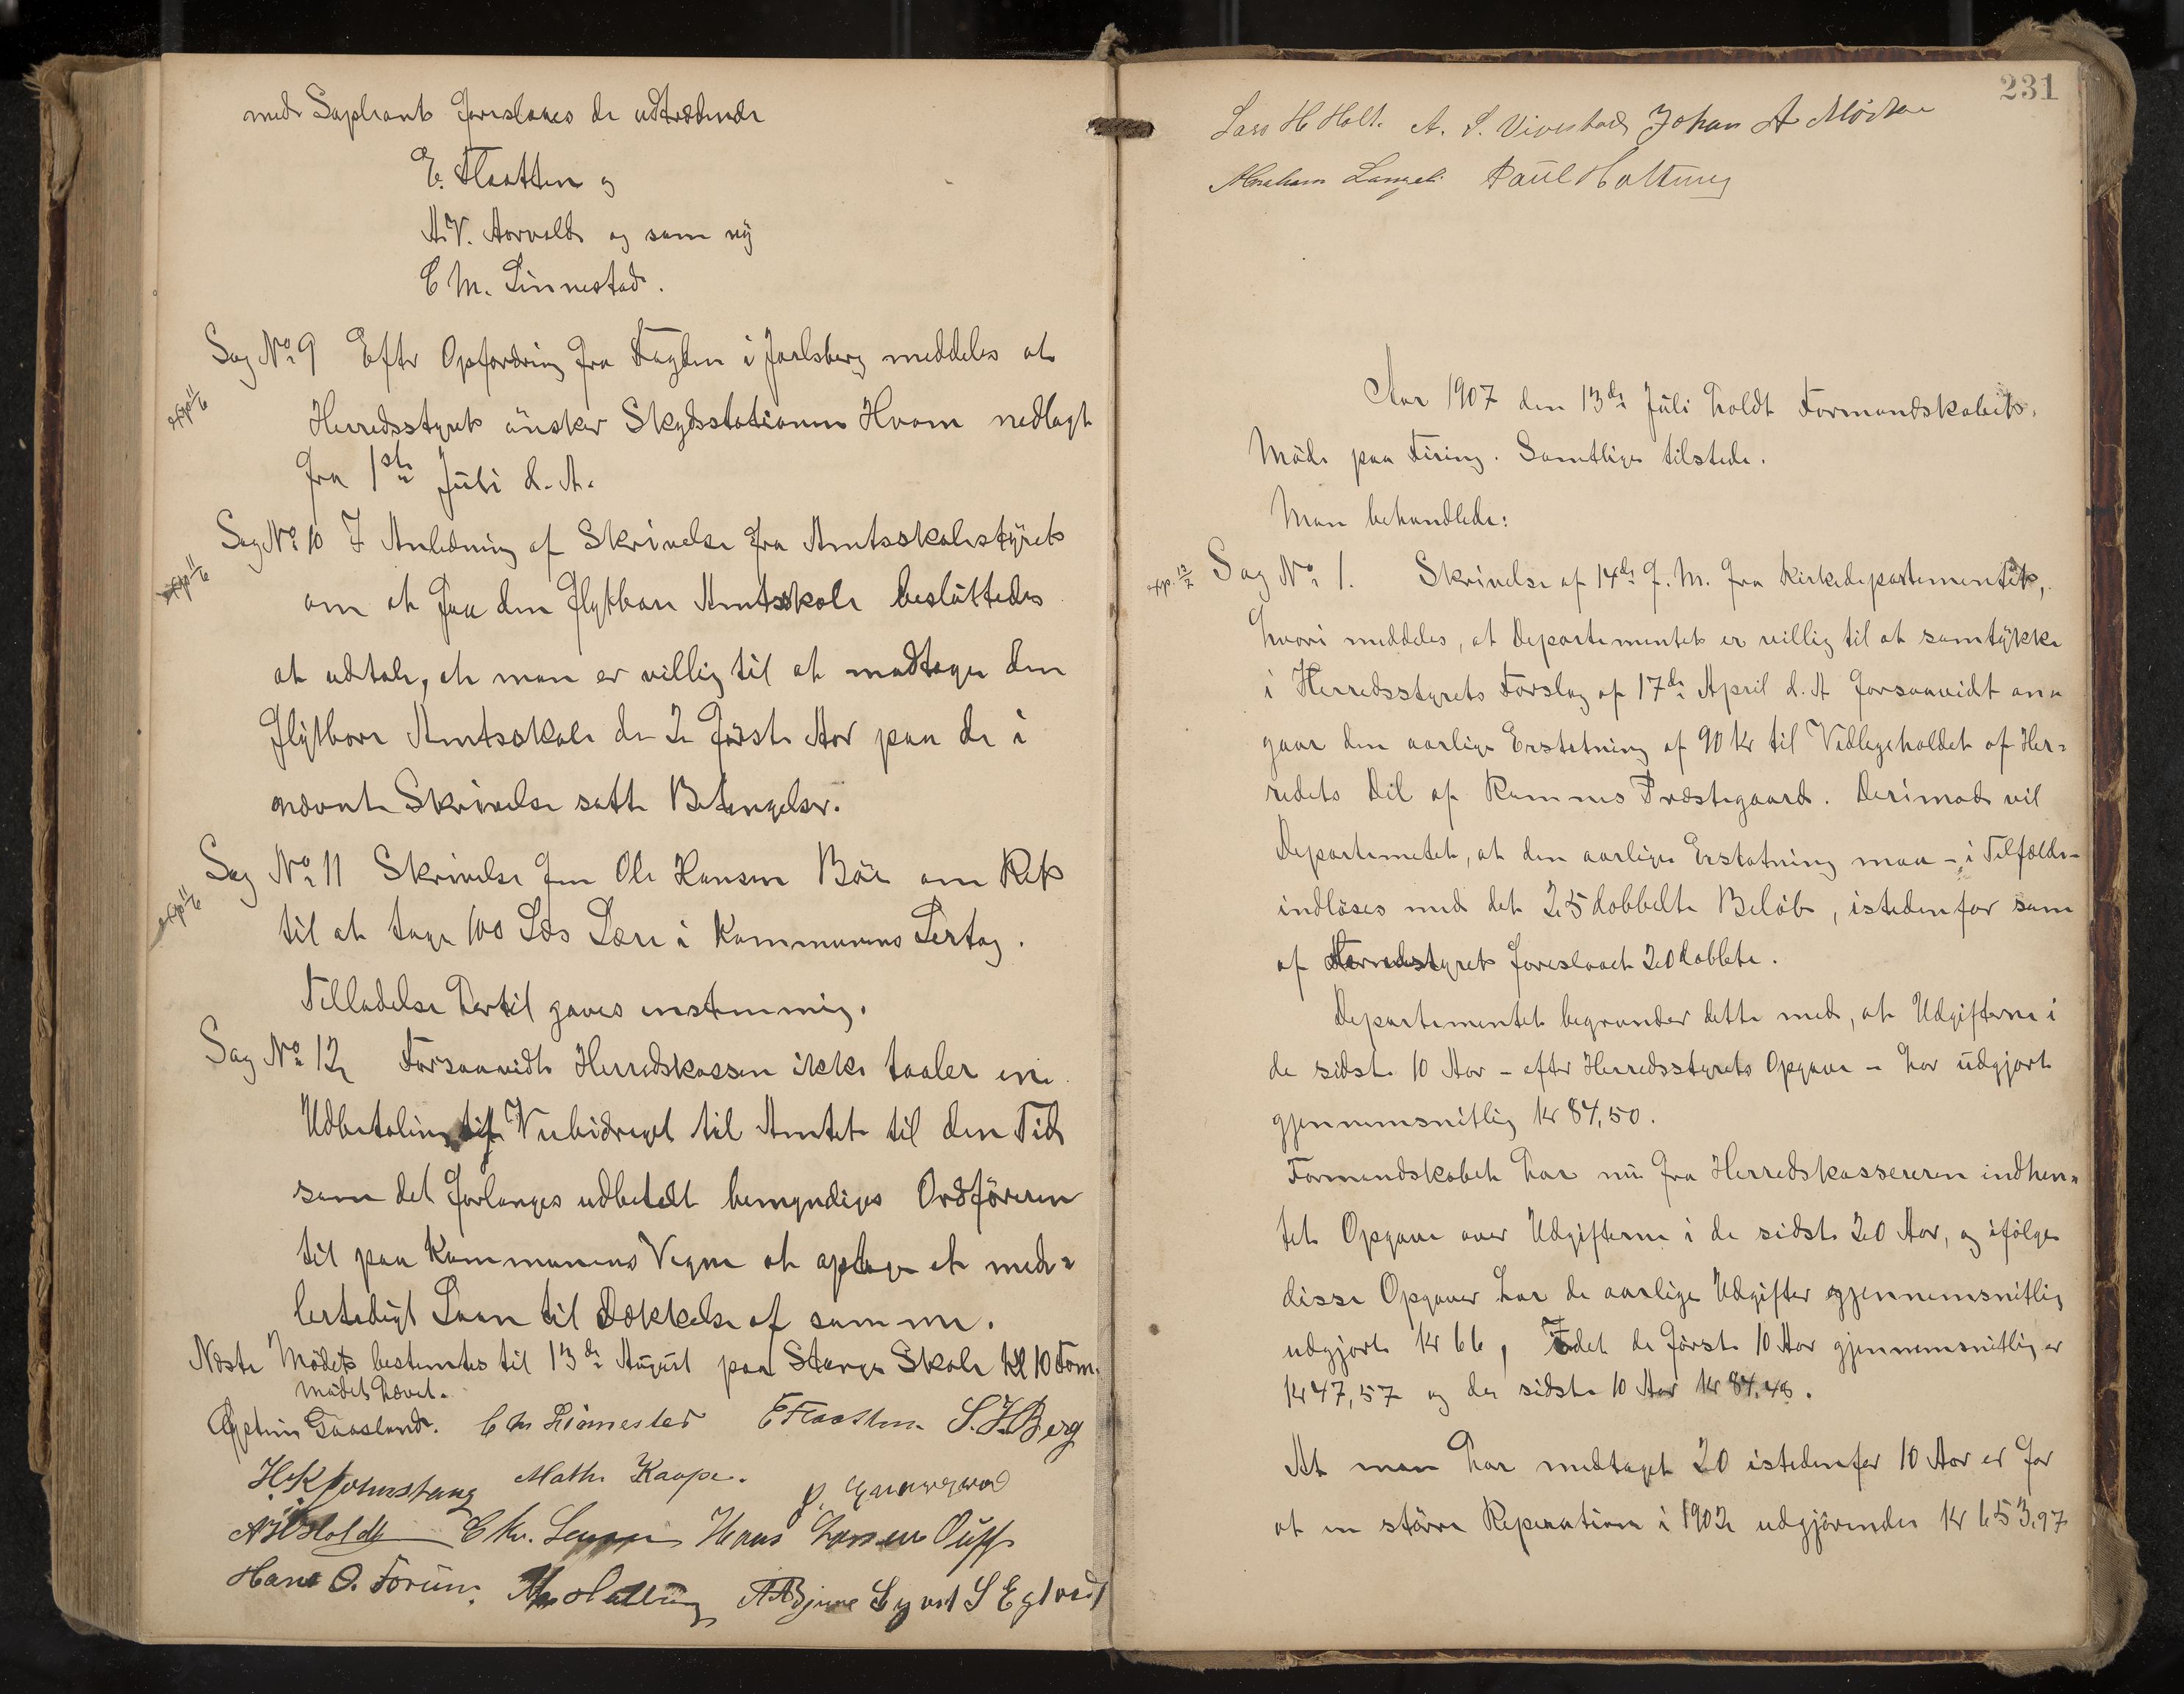 med Supleant foreslaaes de udtrædende
E. Flaatten og
A.V. Aorvold og som ny
C M. Linnestad.
Sag No 9 Efter Opfordring fra Fogden i Jarlsberg meddeles at
exp 11/6
Herredsstyret ønsker Skydsstationen Hvam nedlagt
fra 1ste Juli d. A.
Sag No 10 I Anledning af Skrivelse fra Amtsskolestyret
exp 11/6
om at faa den flytbare Amtsskole besluttedes
at udtale, at man er villig til at modtage den
flytbare Amtsskole de 2 første Aar paa de i
nævnte Skrivelse satte Betingelser.
Sag No 11 Skrivelse fra Ole Hansen Böe om Ret
exp 11/6
til at tage 100 Læs Lere i Kommunens Lertag.
Tilladelse dertil gaves enstemmig.
Sag No 12 Forsaavidt Herredskassen ikke taaler en
Udbetaling af Veibidraget til Amtet til den Tid
som det forlanges udbetalt bemyndiges Ordføreren
til paa Kommunens Vegne at optage et mid=
lertidigt Laan til Dækkelse af samme.
Næste Mødet bestemtes til 13de August paa Stange Skole Kl 10 Form.
Mødet hævet.
Gaasland. C M Linnestad E Flaatten S. J. Berg
H. K. Johnstang Mathi Kaape.
A Holdt Chr. Hans Hansen
Hans O. Forum. A. Holtung A A Bjune Syvert S Eglvedt
231
Lars H Holt. A. L. Vivestad Johan A Mörken
Abraham Langeli Paul Holtung
Aar 1907 den 13de Juli holdt Formandskabet
Möde paa Firing. Samtlige tilstede.
Man behandlede:
exp. 12/7
Sag No 1. Skrivelse af 14de f. M. fra Kirkedepartementet,
hvori meddeles, at Departementet er villig til at samtykke
i Herredsstyrets Forslag af 17de April d. A forsaavidt an=
gaar den aarlige Erstatning af 90 Kr til Vedligeholdet af Her=
redets Del af Ramnes Præstegaard. Derimod vil
Departemetet, at den aarlige Erstatning maa – i Tilfælde –
indløses med det 25 dobbelte Beløb, istedenfor som
af Herredsstyret foreslaaet 20 dobbelte.
Departementet begrunder dette med, at Udgifterne i
de sidste 10 Aar – efter Herredsstyrets Opgave – har udgjort
gjennemsnitlig Kr 84,50.
Formandskabet har nu fra Herredskassereren indhen=
tet Opgave over Udgifterne i de sidste 20 Aar, og ifølge
disse Opgaver har de aarlige Udgifter gjennemsnitlig
udgjort Kr 66, Idet de første 10 Aar gjennemsnitlig er
Kr 47,57 og de sidste 10 Aar Kr 84,48.
At man har medtaget 20 istedenfor 10 Aar er for
at en större Reperation i 1902 udgjørende Kr 653,97